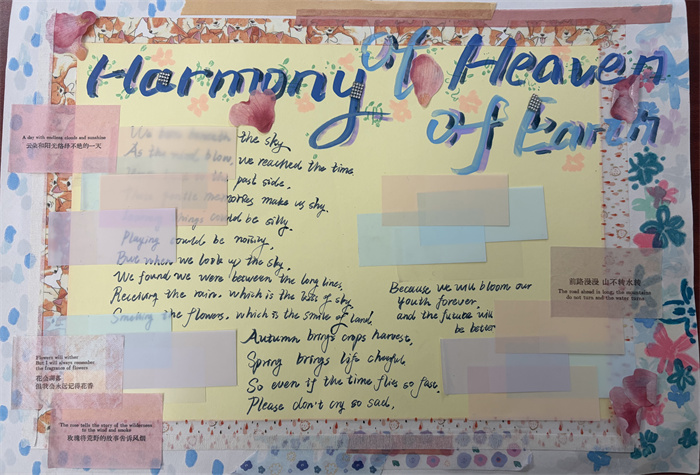 Harmony of Heaven
of Earth
A day with endless clouds and sunshine
云朵和阳光络绎不绝的一天
We been beneath the sky
As the wind blow, we reached the time.
the past side.
memories make us shy.
things could be silly.
Playing could be noisy,
But when we look up the sky.
We found we were between the long lines.
Receiving the rain. which is the kiss of sky
Smelling the flowers. which is the smile of land.
Autumn brings crops harvest.
Spring brings life cheerful.
So even if the time flies so fast.
Please don't cry so sad.
Because we will bloom our
Youth forever.
and the future will
be better
前路漫漫 山不转水转
The road ahead is long, the mountains
do not turn and the water turns
Flowers will wither
But I will always remember,
the fragrance of flowers
花会凋零
但我会永远记得花香
The rose tells the story of the wilderness
to the wind and smoke
玫瑰将荒野的故事告诉风烟